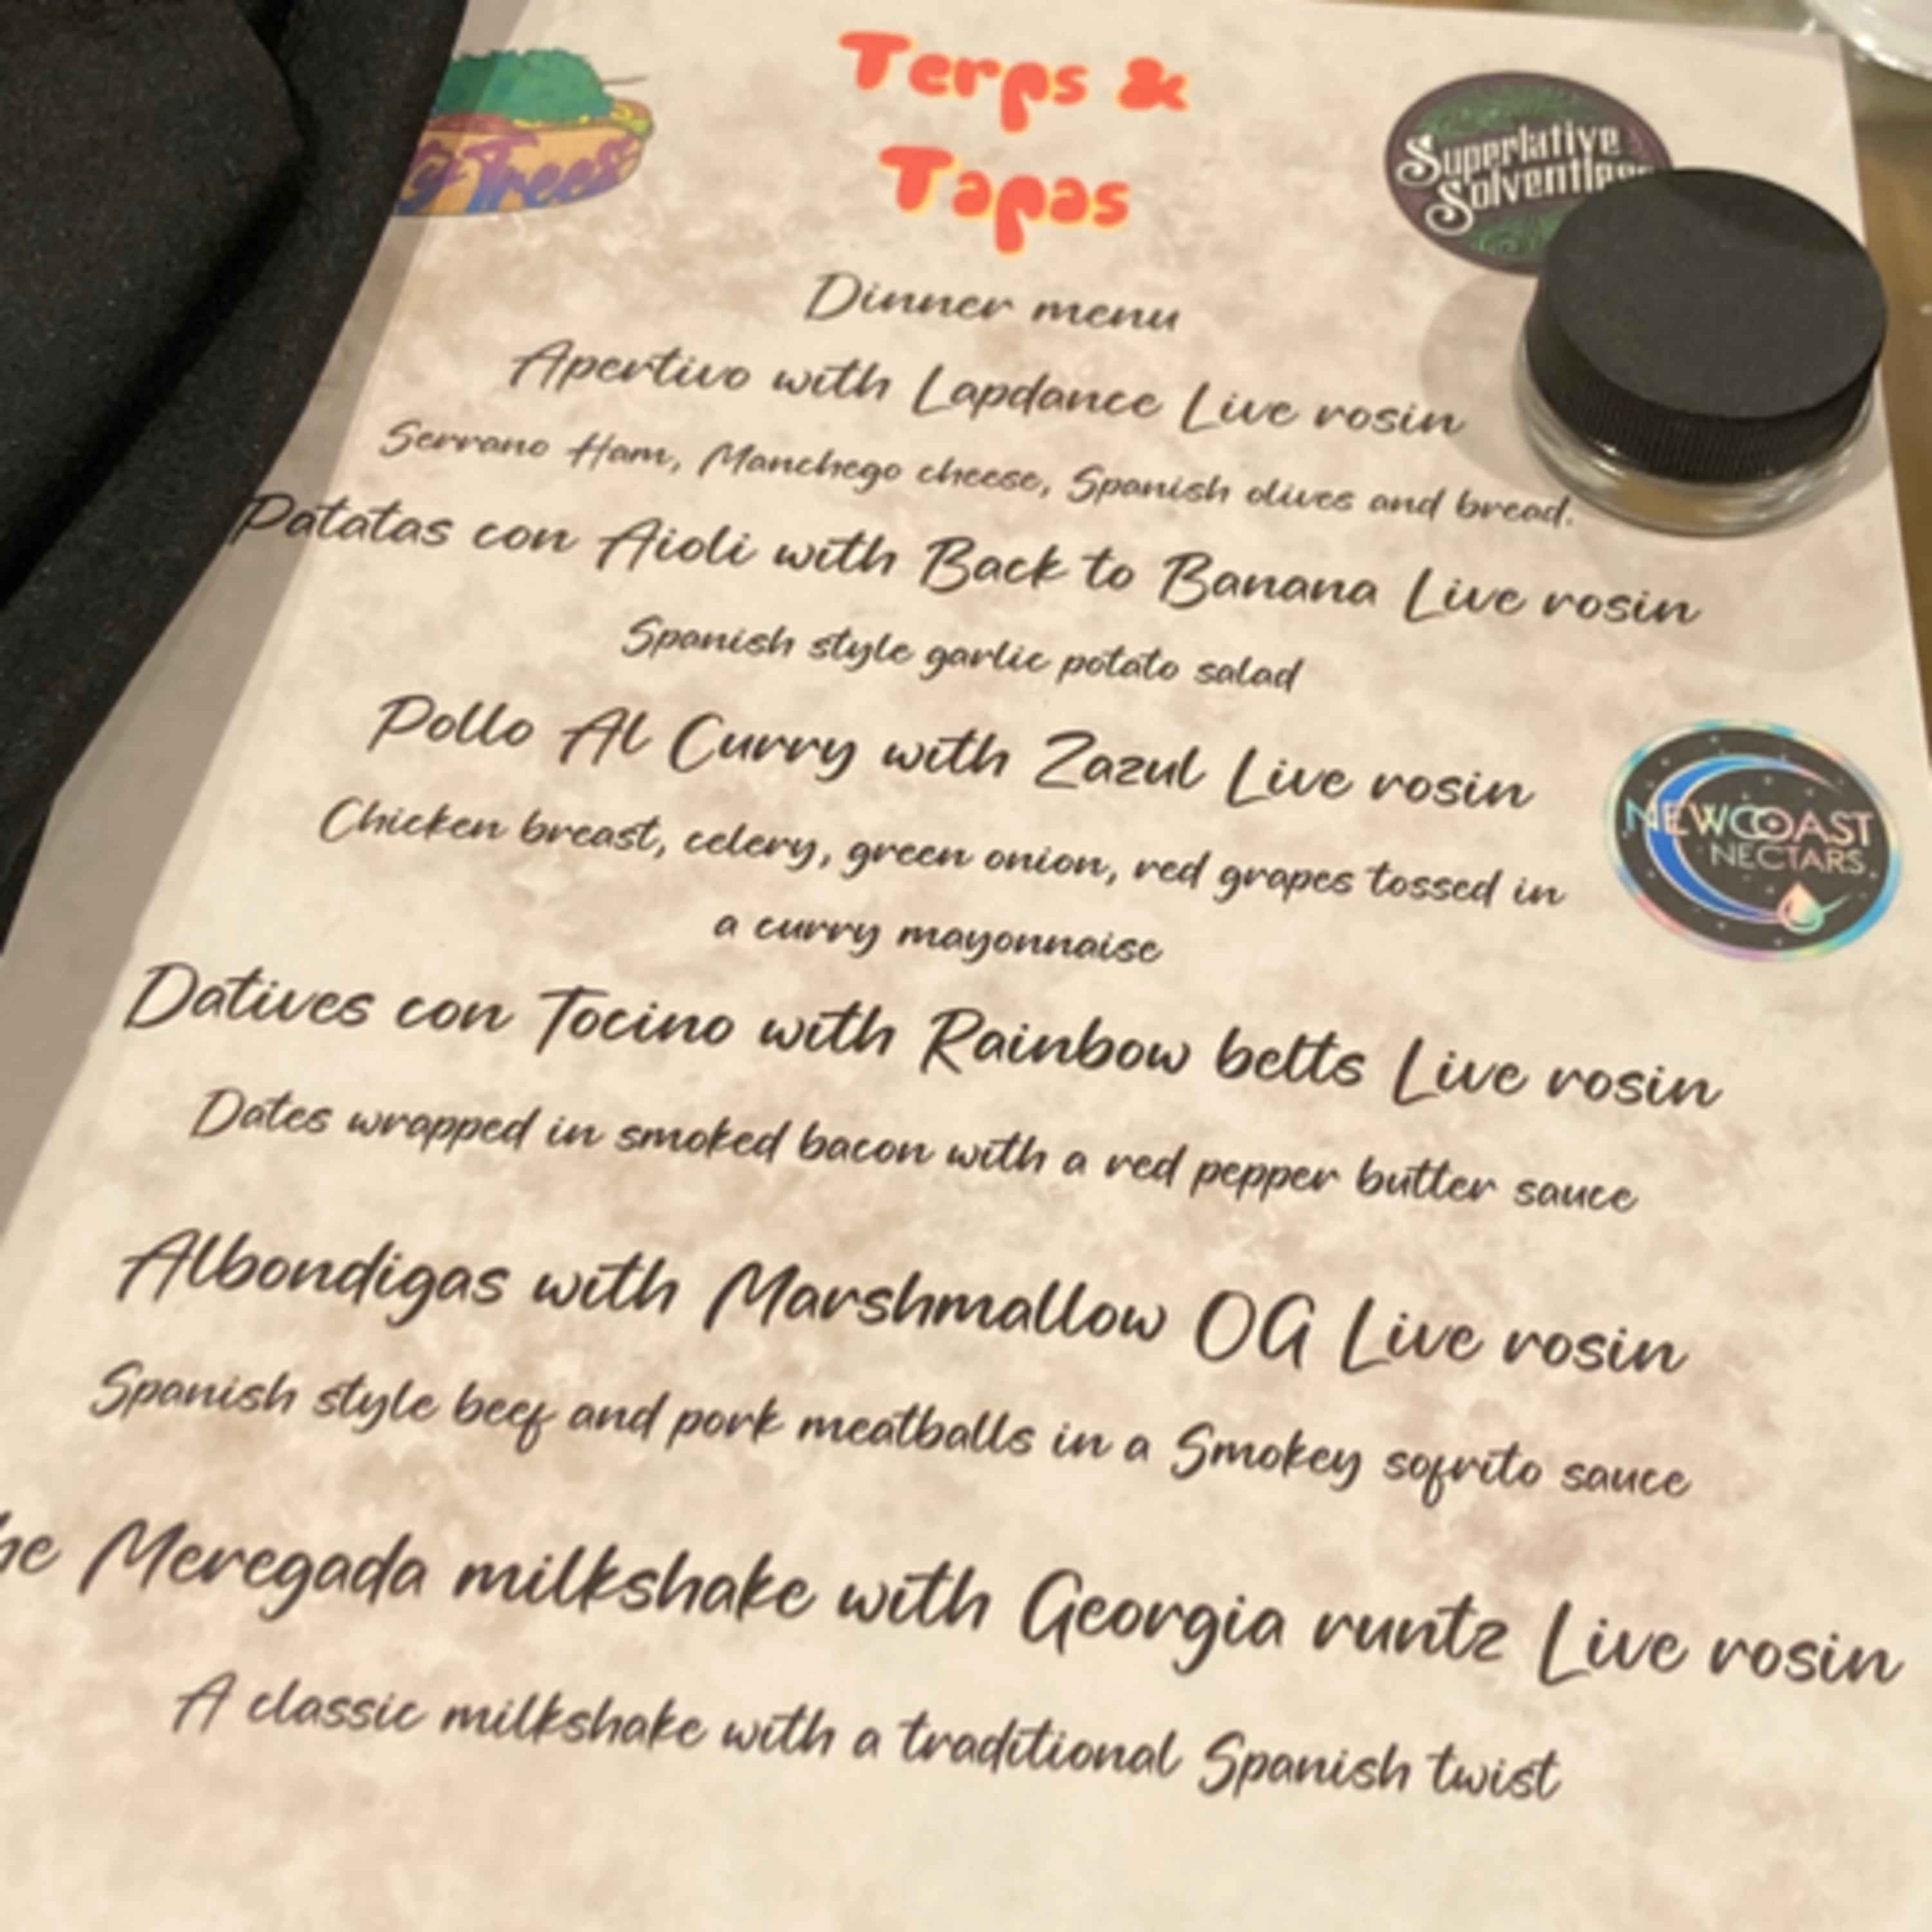 Terps &
Tapas
Trees
Superlative
Dinner menu
Apertivo with Lapdance Live rosin
Serrano Ham, Manchego cheese, Spanish olives and bread.
Patatas con Aioli with Back to Banana Live rosin
Spanish style garlic potato salad
Pollo Al Curry with Zazul Live rosin
Chicken breast, celery, green onion, red grapes tossed in
a curry mayonnaise
NEWCOAST
NECTARS
Datives con Tocino with Rainbow belts Live rosin
Dates wrapped in smoked bacon with a red pepper butter sauce
Albondigas with Marshmallow OG Live rosin
Spanish style beef and pork meatballs in a Smokey sofrito sauce
he Meregada milkshake with Georgia runtz Live rosin
A classic milkshake with a traditional Spanish twist